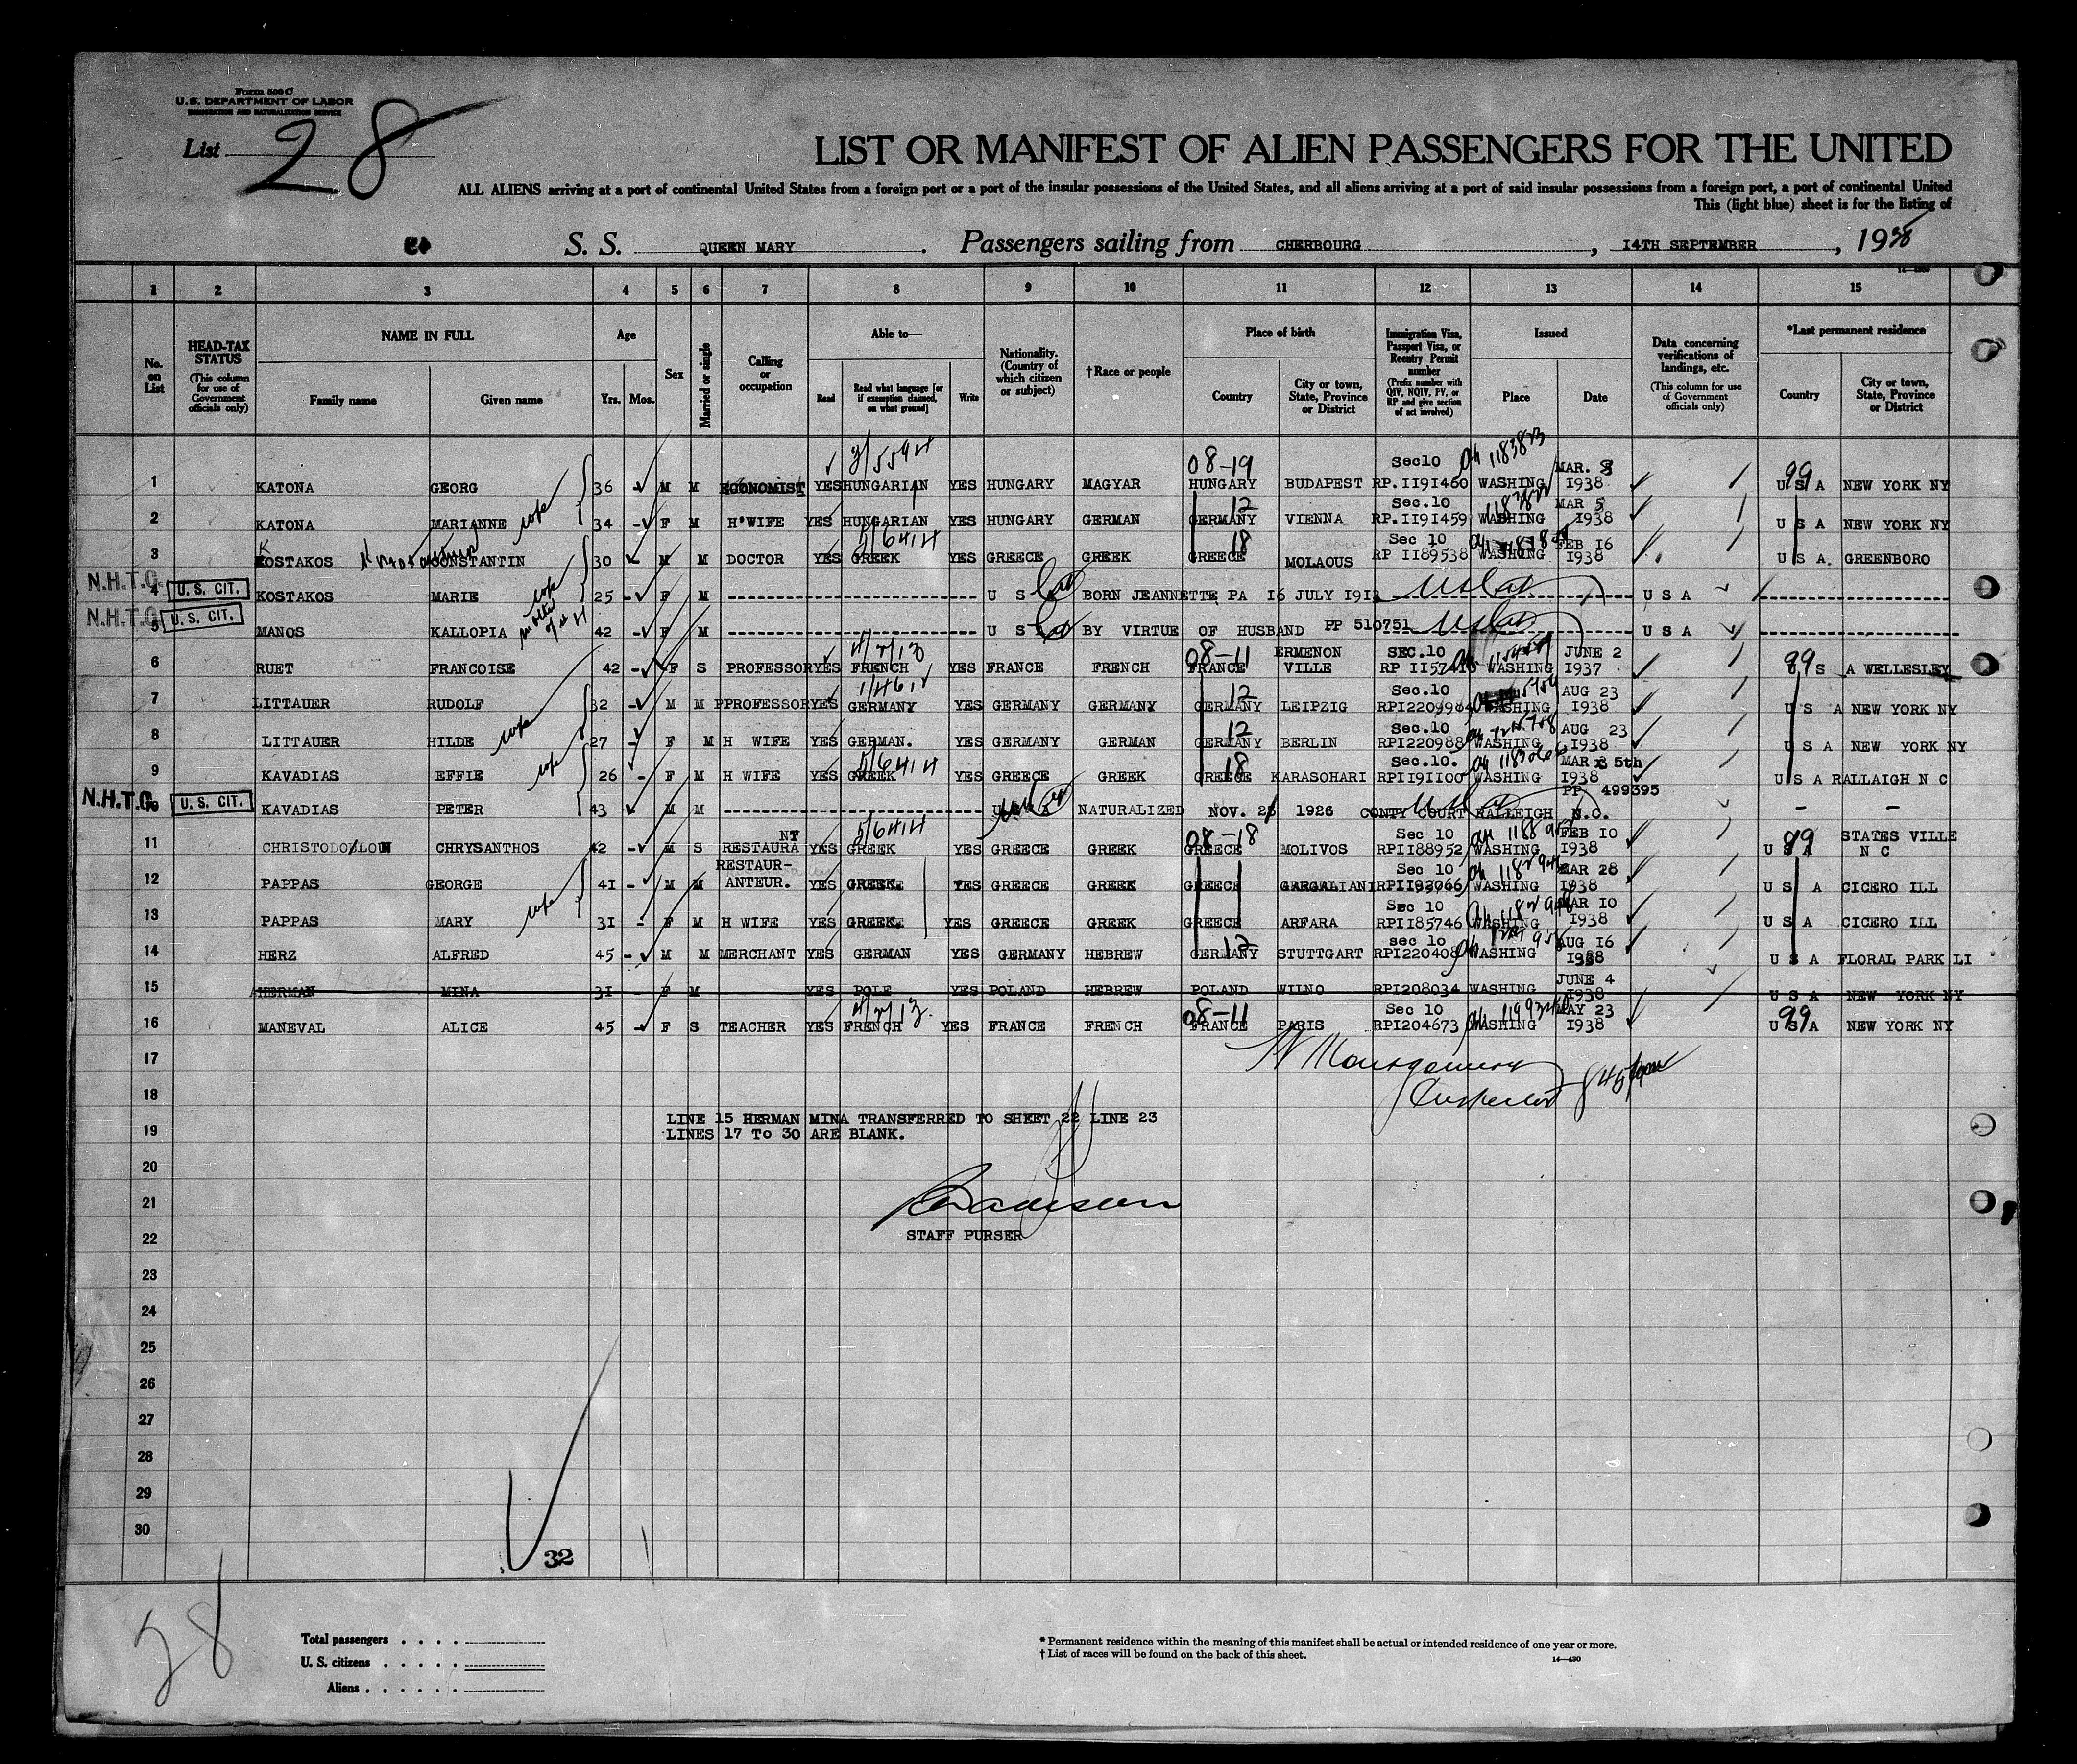 Form 500 C
U.S. DEPARTMENT OF LABOR
IMMIGRATION AND NATURALIZATION SERVICE
List 28
LIST OR MANIFEST OF ALIEN PASSENGERS FOR THE UNITED
ALL ALIENS arriving at a port of continental United States from a foreign port or a port of the insular possessions of the United States, and all aliens arriving at a port of said insular possessions from a foreign port, a port of continental United
This (light blue) sheet is for the listing of
S. S. QUEEN MARY. Passengers sailing from CHERBOURG, 14TH SEPTEMBER, 1938
1 2 3 4 5 6 7 8 9 10 11 12 13 14 15
No. on List
HEAD-TAX STATUS (This column for use of Government officials only)
NAME IN FULL Family name Given name
Age Yrs. Mos.
Sex
Married or single
Calling or occupation
Able to— Read Read what language [or if exemption claimed, on what ground] Write
Nationality. (Country of which citizen or subject)
†Race or people
Place of birth Country City or town, State, Province or District
Immigration Visa, Passport Visa, or Reentry Permit number (Prefix number with QIV, NQIV, PV, or RP and give section of act involved)
Issued Place Date
Data concerning verifications of landings, etc. (This column for use of Government officials only)
*Last permanent residence Country City or town, State, Province or District
1 KATONA GEORG 36 - M M ECONOMIST YES HUNGARIAN YES HUNGARY MAGYAR 08-19 HUNGARY BUDAPEST Sec10 RP.II91460 WASHING MAR. 8 1938 99 U S A NEW YORK NY
2 KATONA MARIANNE wife 34 - F M H*WIFE YES HUNGARIAN YES HUNGARY GERMAN 12 GERMANY VIENNA Sec.10 RP.II91459 WASHING MAR 5 1938 U S A NEW YORK NY
3 KOSTAKOS CONSTANTIN 30 M M DOCTOR YES GREEK YES GREECE GREEK 18 GREECE MOLAOUS Sec 10 RP II89538 WASHING FEB 16 1938 U S A. GREENBORO
N.H.T.C. 4 U. S. CIT. KOSTAKOS MARIE wife 25 - F M U S BORN JEANNETTE PA 16 JULY 1913 U S A
N.H.T.C. 5 U. S. CIT. MANOS KALLOPIA mother of #4 42 - F M U S BY VIRTUE OF HUSBAND PP 510751 U S A
6 RUET FRANCOISE 42 - F S PROFESSOR YES FRENCH YES FRANCE FRENCH 08-11 FRANCE ERMENON VILLE SEC.10 RP II57416 WASHING JUNE 2 1937 99 U S A WELLESLEY
7 LITTAUER RUDOLF 32 - M M PPROFESSOR YES GERMANY YES GERMANY GERMANY 12 GERMANY LEIPZIG Sec.10 WASHING AUG 23 1938 U S A NEW YORK NY
8 LITTAUER HILDE wife 27 - F M H WIFE YES GERMAN. YES GERMANY GERMAN 12 GERMANY BERLIN Sec.10 RPI220988 WASHING AUG 23 1938 U S A NEW YORK NY
9 KAVADIAS EFFIE wife 26 - F M H WIFE YES GREEK YES GREECE GREEK 18 GREECE KARASOHARI Sec.10. RPI191100 WASHING MAR 5th 1938 U S A RALLAIGH N C
N.H.T.C. 10 U. S. CIT. KAVADIAS PETER 43 M M NATURALIZED NOV. 1926 CONTY COURT RALLEIGH N.C. PP. 499395 - -
11 CHRISTODOULOU CHRYSANTHOS 42 - M S RESTAURANT YES GREEK YES GREECE GREEK 08-18 GREECE MOLIVOS Sec 10 RPI188952 WASHING FEB 10 1938 99 U S A STATES VILLE N C
12 PAPPAS GEORGE 41 - M M RESTAUR-ANTEUR. YES GREEK. YES GREECE GREEK GREECE GARGALIANI Sec 10 RPI192066 WASHING MAR 28 1938 U S A CICERO ILL
13 PAPPAS MARY wife 31 - F M H WIFE YES GREEK. YES GREECE GREEK GREECE ARFARA Sec 10 RPI185746 WASHING MAR 10 1938 U S A CICERO ILL
14 HERZ ALFRED 45 - M M MERCHANT YES GERMAN YES GERMANY HEBREW 12 GERMANY STUTTGART sec 10 RPI220408 WASHING AUG 16 1938 U S A FLORAL PARK LI
15 HERMAN MINA 31 F M YES POLE YES POLAND HEBREW POLAND WILNO RPI208034 WASHING JUNE 4 1938 U S A NEW YORK NY
16 MANEVAL ALICE 45 - F S TEACHER YES FRENCH YES FRANCE FRENCH 08-11 FRANCE PARIS Sec 10 RPI204673 WASHING MAY 23 1938 99 U S A NEW YORK NY
17
18
LINE 15 HERMAN MINA TRANSFERRED TO SHEET 22 LINE 23
19 LINES 17 TO 30 ARE BLANK.
20
21
22 STAFF PURSER
23
24
25
26
27
28
29
30
32
28
Total passengers
U. S. citizens
Aliens
* Permanent residence within the meaning of this manifest shall be actual or intended residence of one year or more.
† List of races will be found on the back of this sheet.
14—430